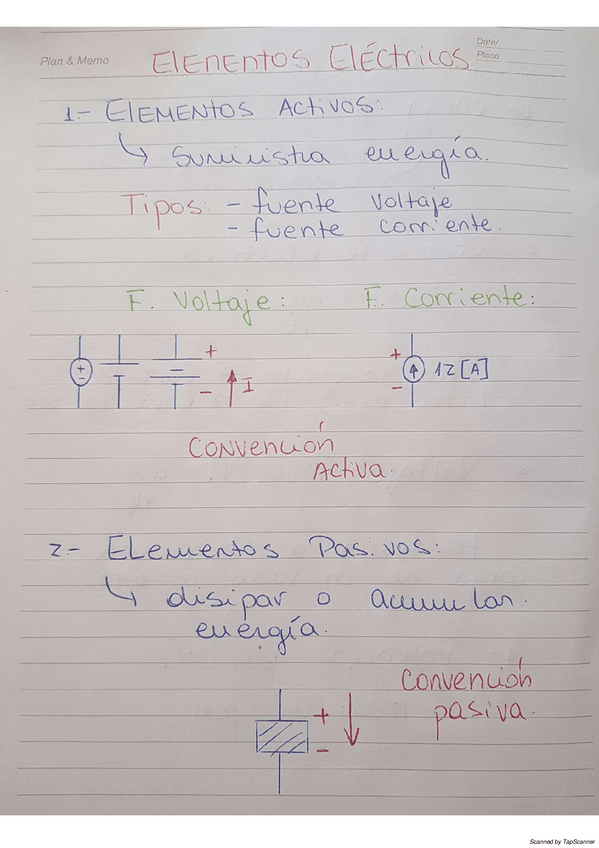 Plan & Memo
Elementos Eléctricos
Date/
Place
1.- Elementos Activos:
↳ Suministra energía.
Tipos: - fuente Voltaje
- fuente corriente.
F. Voltaje: F. Corriente:
+
- I
+
12 [A]
-
Convención
Activa.
2- Elementos Pasivos:
↳ disipar o acumular.
energía.
Convención
pasiva.
+
-
Scanned by TapScanner